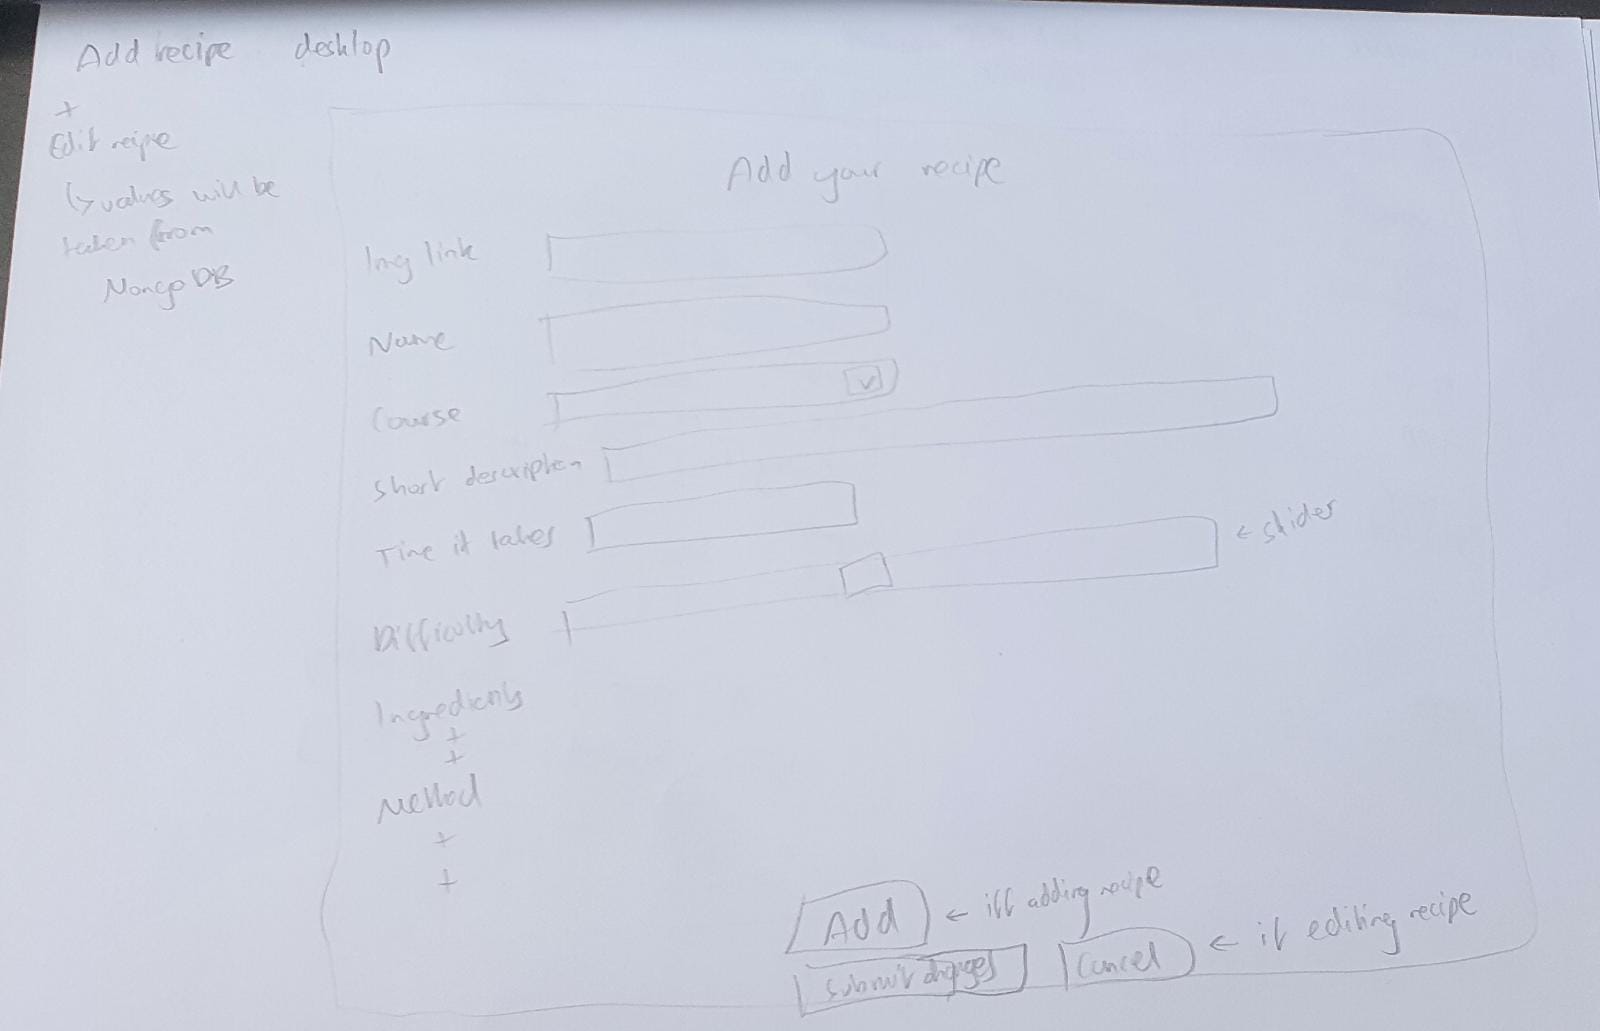 Add recipe desktop
+
Edit recipe
↳ values will be
taken from
MongoDB
Add your recipe
Img link
Name
Course
v
Short description
Time it takes
← slider
Difficulty
Ingredients
+
+
Method
+
+
Add ← iff adding recipe
Submit changes Cancel ← if editing recipe